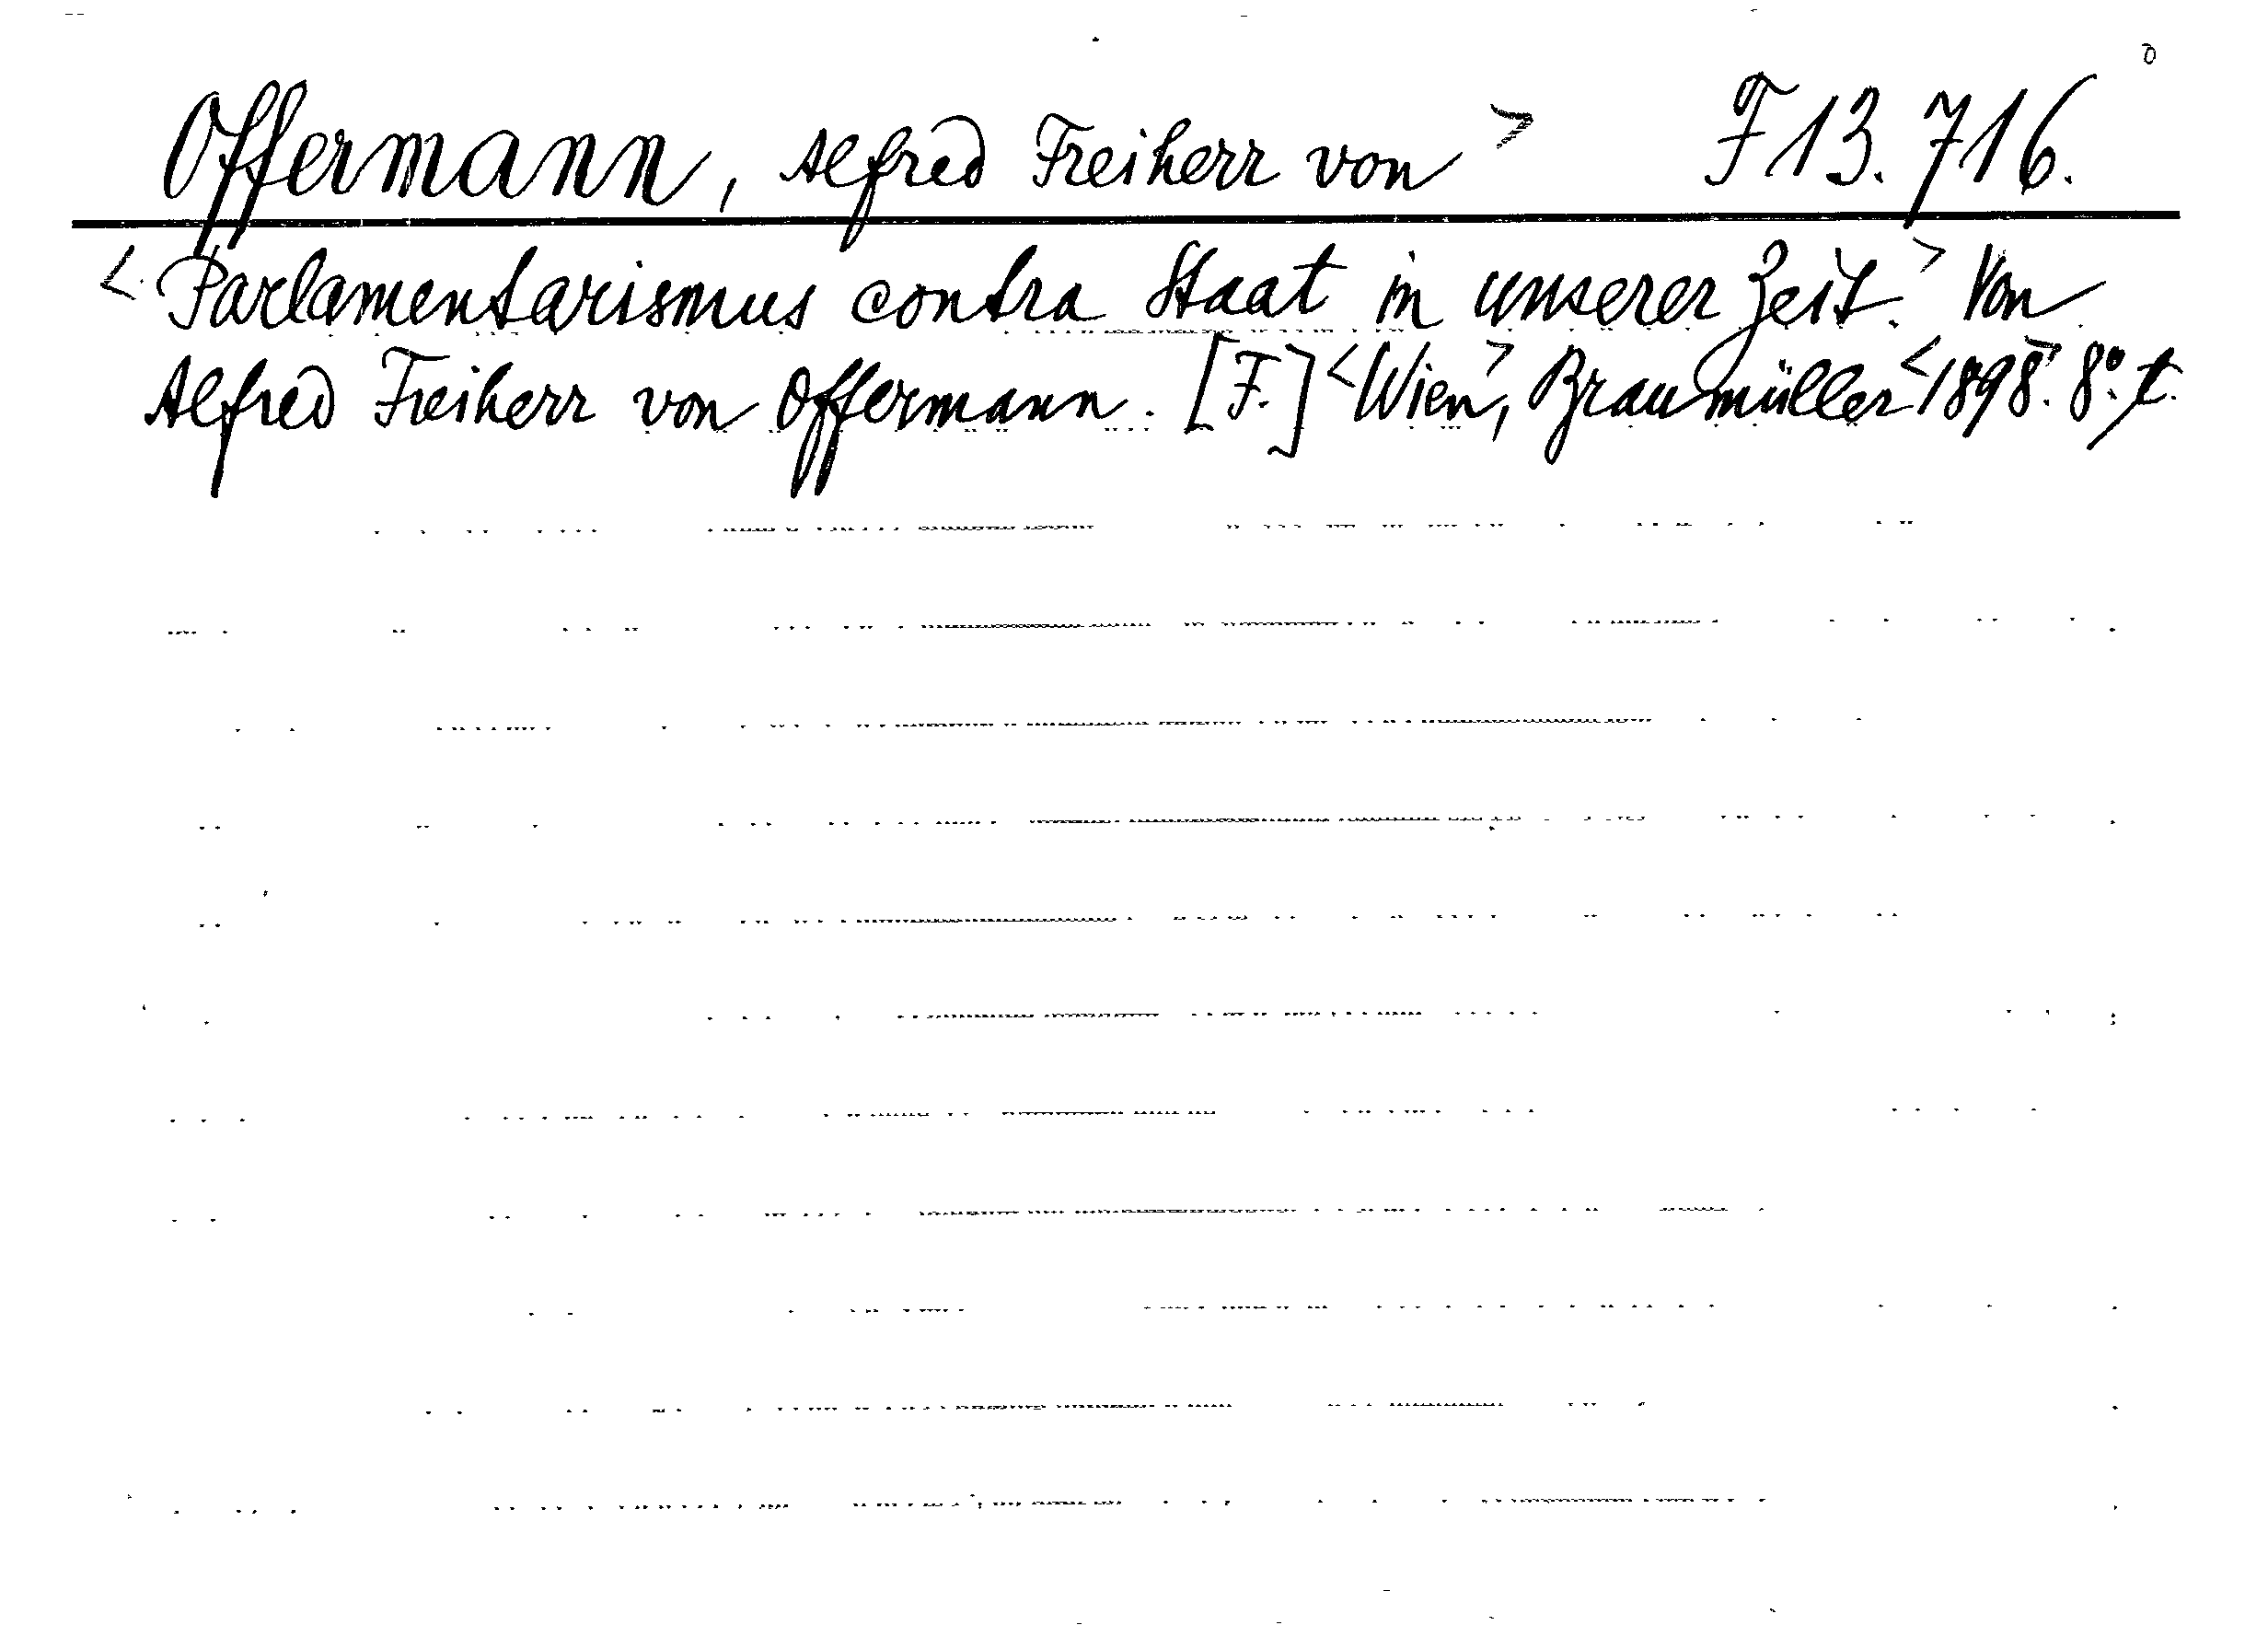 Offermann, Alfred Freiherr von > F 13.716.
<Parlamentarismus contra Staat in unserer Zeit.> Von
Alfred Freiherr von Offermann. [F.] <Wien>, Braumüller <1898>. 8°. t.